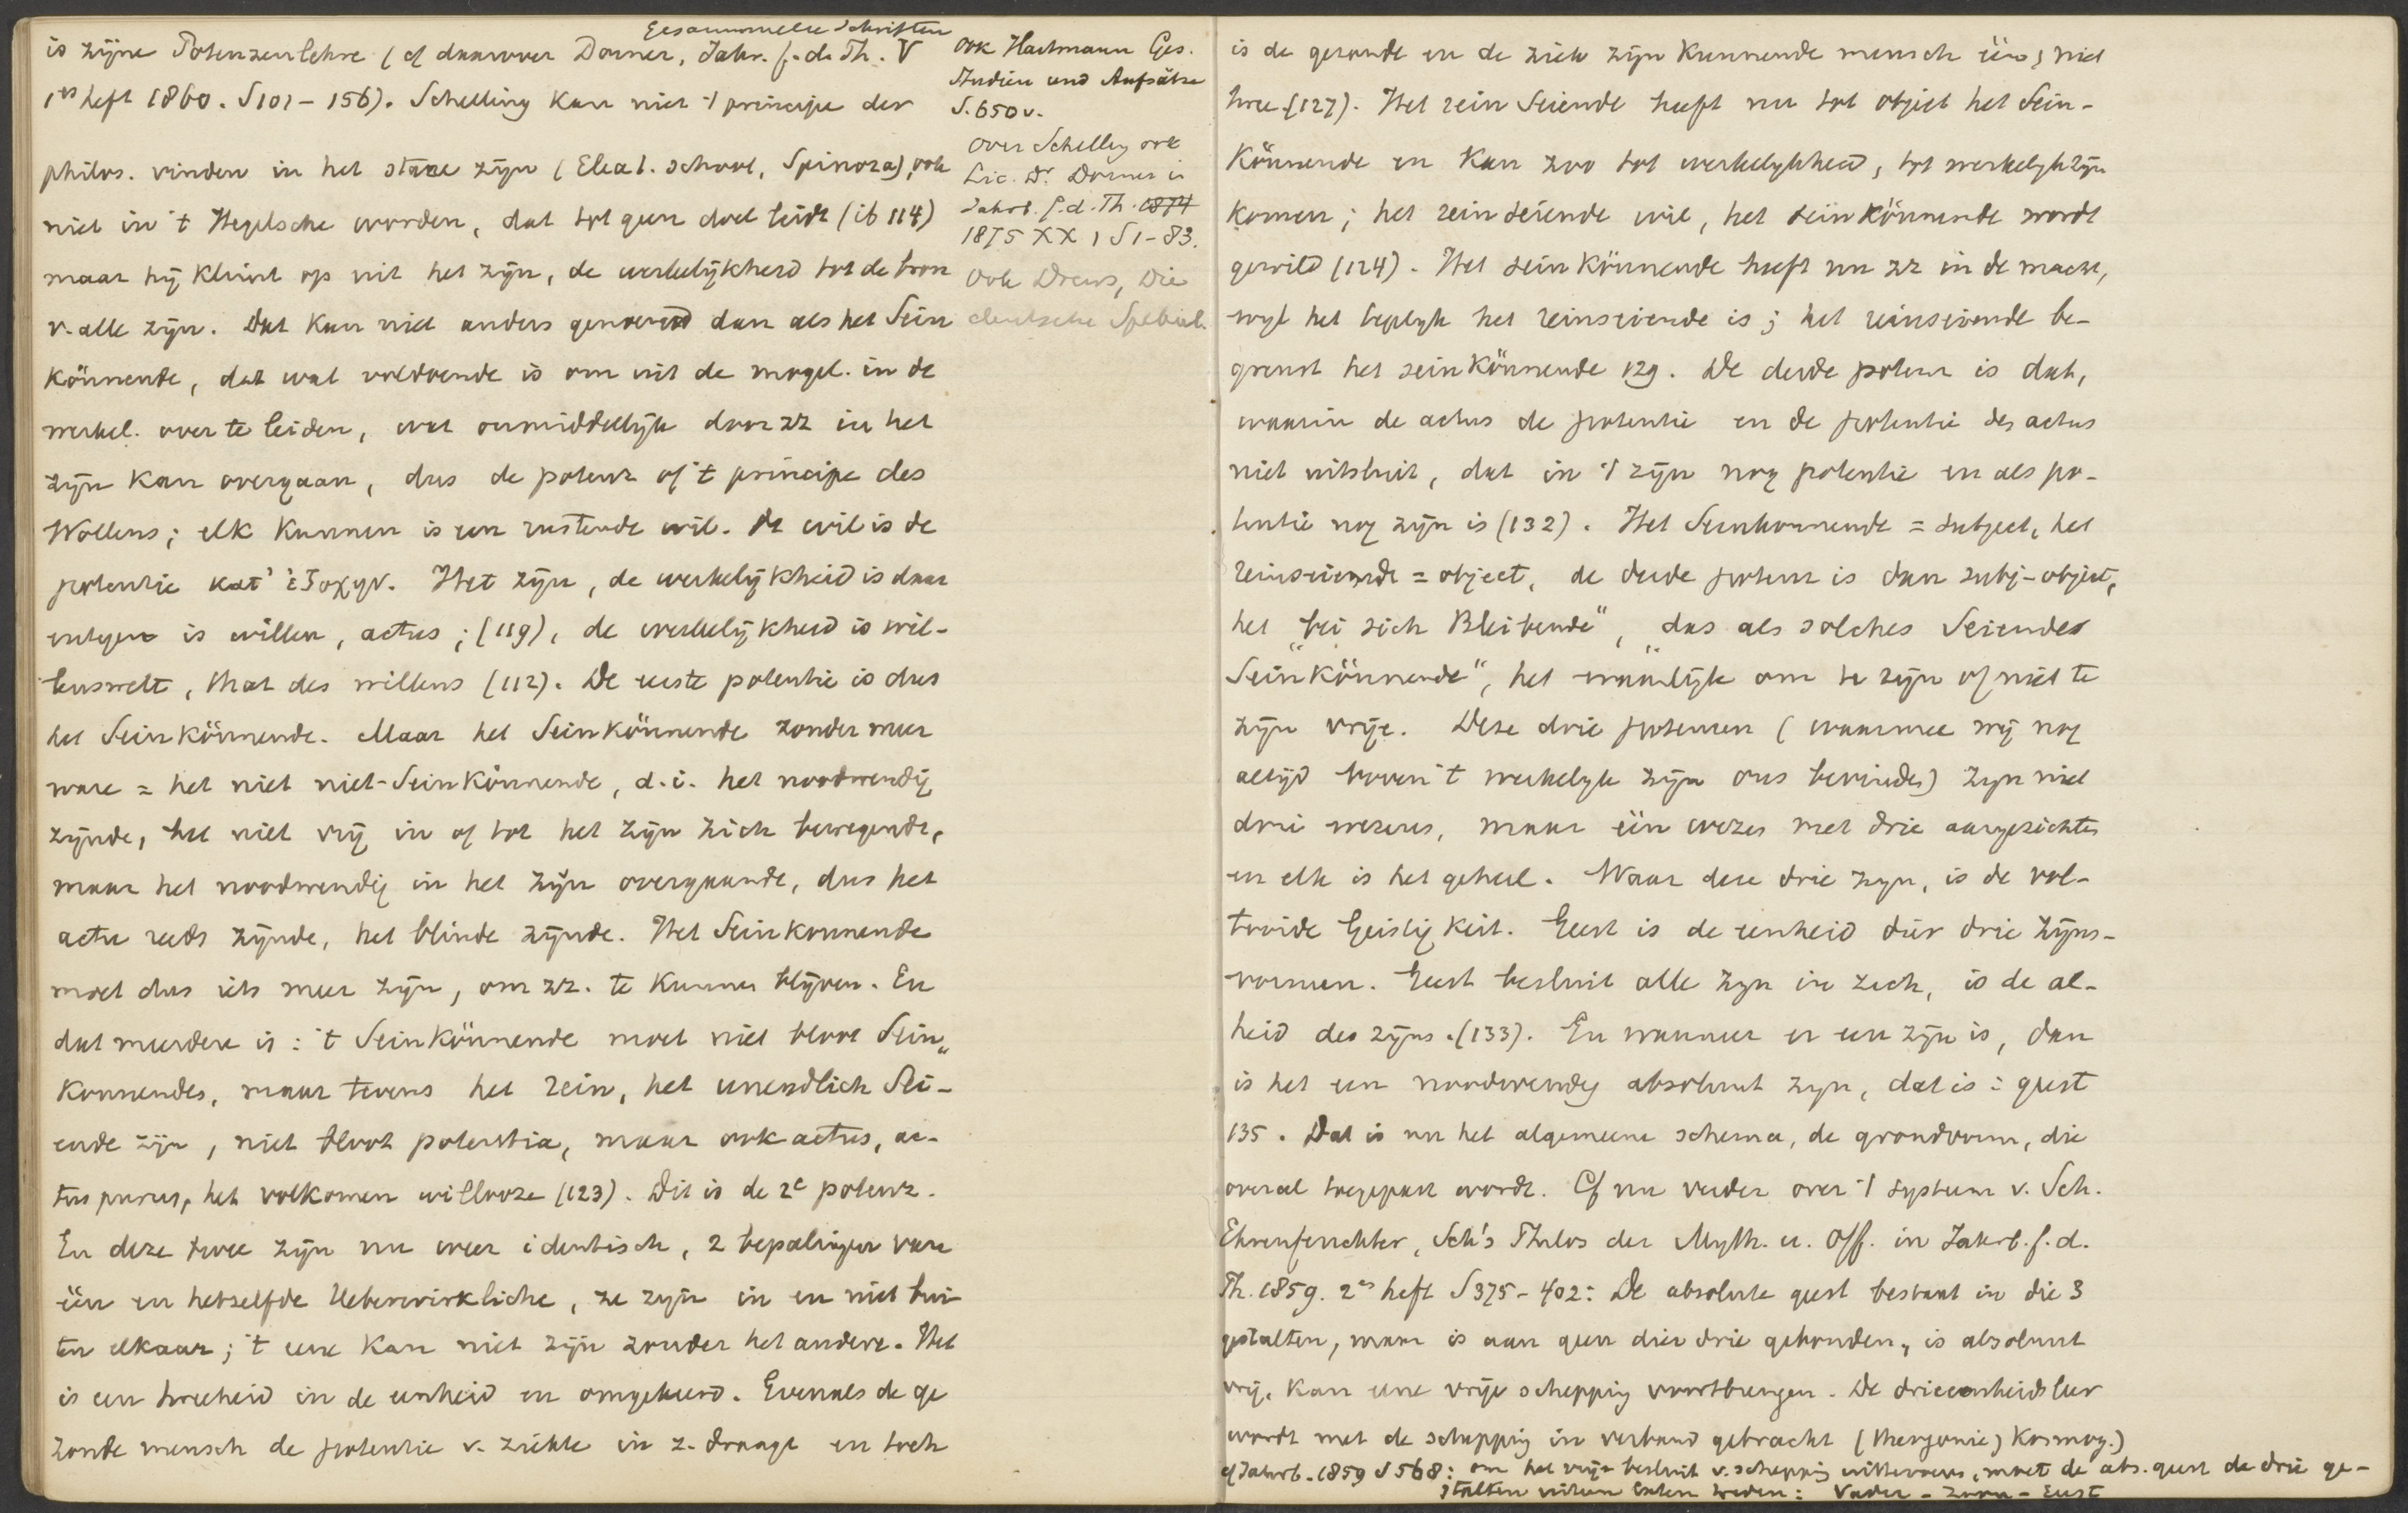 Gesammelte Schriften
is zijne Potenzenlehre (cf daarover Dorner, Jahr. f. d. Th. V
1es heft 1860. S 101-156). Schelling kan niet 't principe der
philos. vinden in het starre zijn (Eleat. school, Spinoza), ook
niet in 't Hegelsche worden, dat tot geen doel leidt (ib 114)
maar hij klimt op uit het zijn, de werkelijkheid tot de bron
v. alle zijn. Dat kan niet anders genoemd dan als het Sein
könnende, dat wat voldoende is om uit de mogel. in de
werkel. over te leiden, wat onmiddellijk door zz in het
zijn kan overgaan, dus de potenz of 't principe des
Wollens; elk kunnen is een rustende wil. De wil is de
potentie κατ' ἐξοχην. Het zijn, de werkelijkheid is daar
entegen is willen, actus; (119), de werkelijkheid is wil-
lenswelt, that des willens (112). De eerste potentie is dus
het Seinkönnende. Maar het Seinkönnende zonder meer
ware = het niet niet-Seinkönnende, d.i. het noodwendig
zijnde, het niet vrij in of tot het zijn zich bewegende,
maar het noodwendig in het zijn overgaande, dus het
actu reeds zijnde, het blinde zijnde. Het Seinkonnende
moet dus iets meer zijn, om zz. te kunnen blijven. En
dat meerdere is: 't Seinkönnende moet niet bloot Sein„
konnendes, maar tevens het rein, het unendlich Sei-
ende zijn, niet bloot potentia, maar ook actus, ac-
tus purus, het volkomen willooze (123). Dit is de 2e potenz.
En deze twee zijn nu weer identisch, 2 bepalingen van
één en hetzelfde Ueberwirkliche, ze zijn in en niet bui
ten elkaar; 't eene kan niet zijn zonder het andere. Het
is een tweeheid in de eenheid en omgekeerd. Evenals de ge
zonde mensch de potentie v. ziekte in z. draagt en toch
ook Hartmann Ges.
Studien und Aufsätze
S. 650 v.
Over Schelling ook
Lic. Dr Dorner in
Jahrb. f. d. Th. 1874
1875 XX 1 S 1-83.
Ook Drews, Die
deutsche Spekul.
is de gezonde en de ziek zijn kunnende mensch één, niet
twee (127). Het rein Seiende heeft nu tot object het Sein-
könnende en kan zoo tot werkelijkheid, tot werkelijk zijn
komen; het rein seiende wil, het seinkönnende wordt
gewild (124). Het seinkönnende heeft nu zz in de macht,
wijl het tegelijk het reinseiende is; het reinseiende be-
grenst het seinkönnende 129. De derde potenz is dat,
waarin de actus de potentie en de potentie des actus
niet uitsluit, dat in 't zijn nog potentie en als po-
tentie nog zijn is (132). Het Seinkonnende = subject, het
reinseiende = object, de derde potenz is dan subj-object,
het „bei sich Bleibende", „das als solches Seiendes
Seinkönnende", het waarlijk om te zijn of niet te
zijn vrije. Deze drie potenzen (waarmee wij nog
altijd boven 't werkelijk zijn ons bevinden) zijn niet
drie wezens, maar één wezen met drie aangezichten
en elk is het geheel. Waar deze drie zijn, is de vol-
tooide Geistigkeit. Geest is de eenheid dier drie zijns-
vormen. Geest besluit alle zijn in zich, is de al-
heid des zijns. (133). En wanneer er een zijn is, dan
is het een noodwendig absoluut zijn, dat is: geest
135. Dat is nu het algemeene schema, de grondvorm, die
overal toegepast wordt. Cf nu verder over 't systeem v. Sch.
Ehrenfeuchter, Sch's Philos der Myth. u. Off. in Jahrb. f. d.
Th. 1859. 2es heft S 375-402: De absolute geest bestaat in die 3
gestalten, maar is aan geen dier drie gebonden, is absoluut
vrij, kan eene vrije schepping voortbrengen. De drieeenheidsleer
wordt met de schepping in verband gebracht (theogonie) kosmog.)
cf Jahrb. 1859 S 568: om het vrije besluit v. schepping uittevoeren, moet de abs. geest de drie ge-
stalten uiteen laten treden: Vader - Zoon - Geest